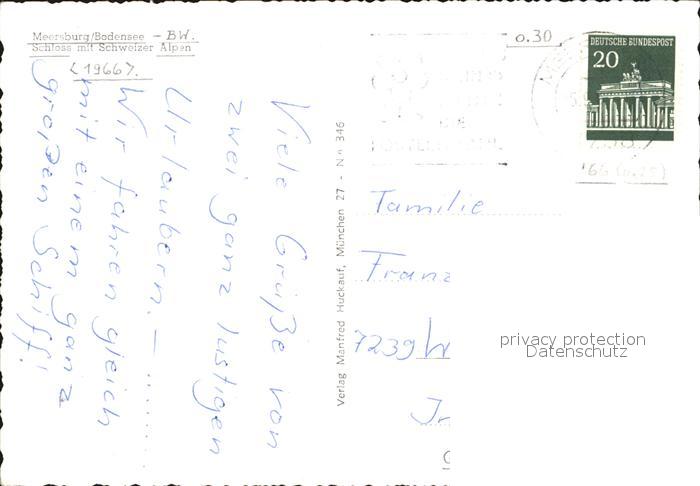 Meersburg/Bodensee - BW.
Schloss mit Schweizer Alpen
<1966>.
0.30
DEUTSCHE BUNDESPOST
20
'66 (0.25)
Viele Grüße von
zwei ganz lustigen
Urlaubern. —
Wir fahren gleich
mit einem ganz
großen Schiff!
Verlag Manfred Huckauf, München 27 - Nr. 346
Familie
Franz
7239 W
privacy protection
Datenschutz